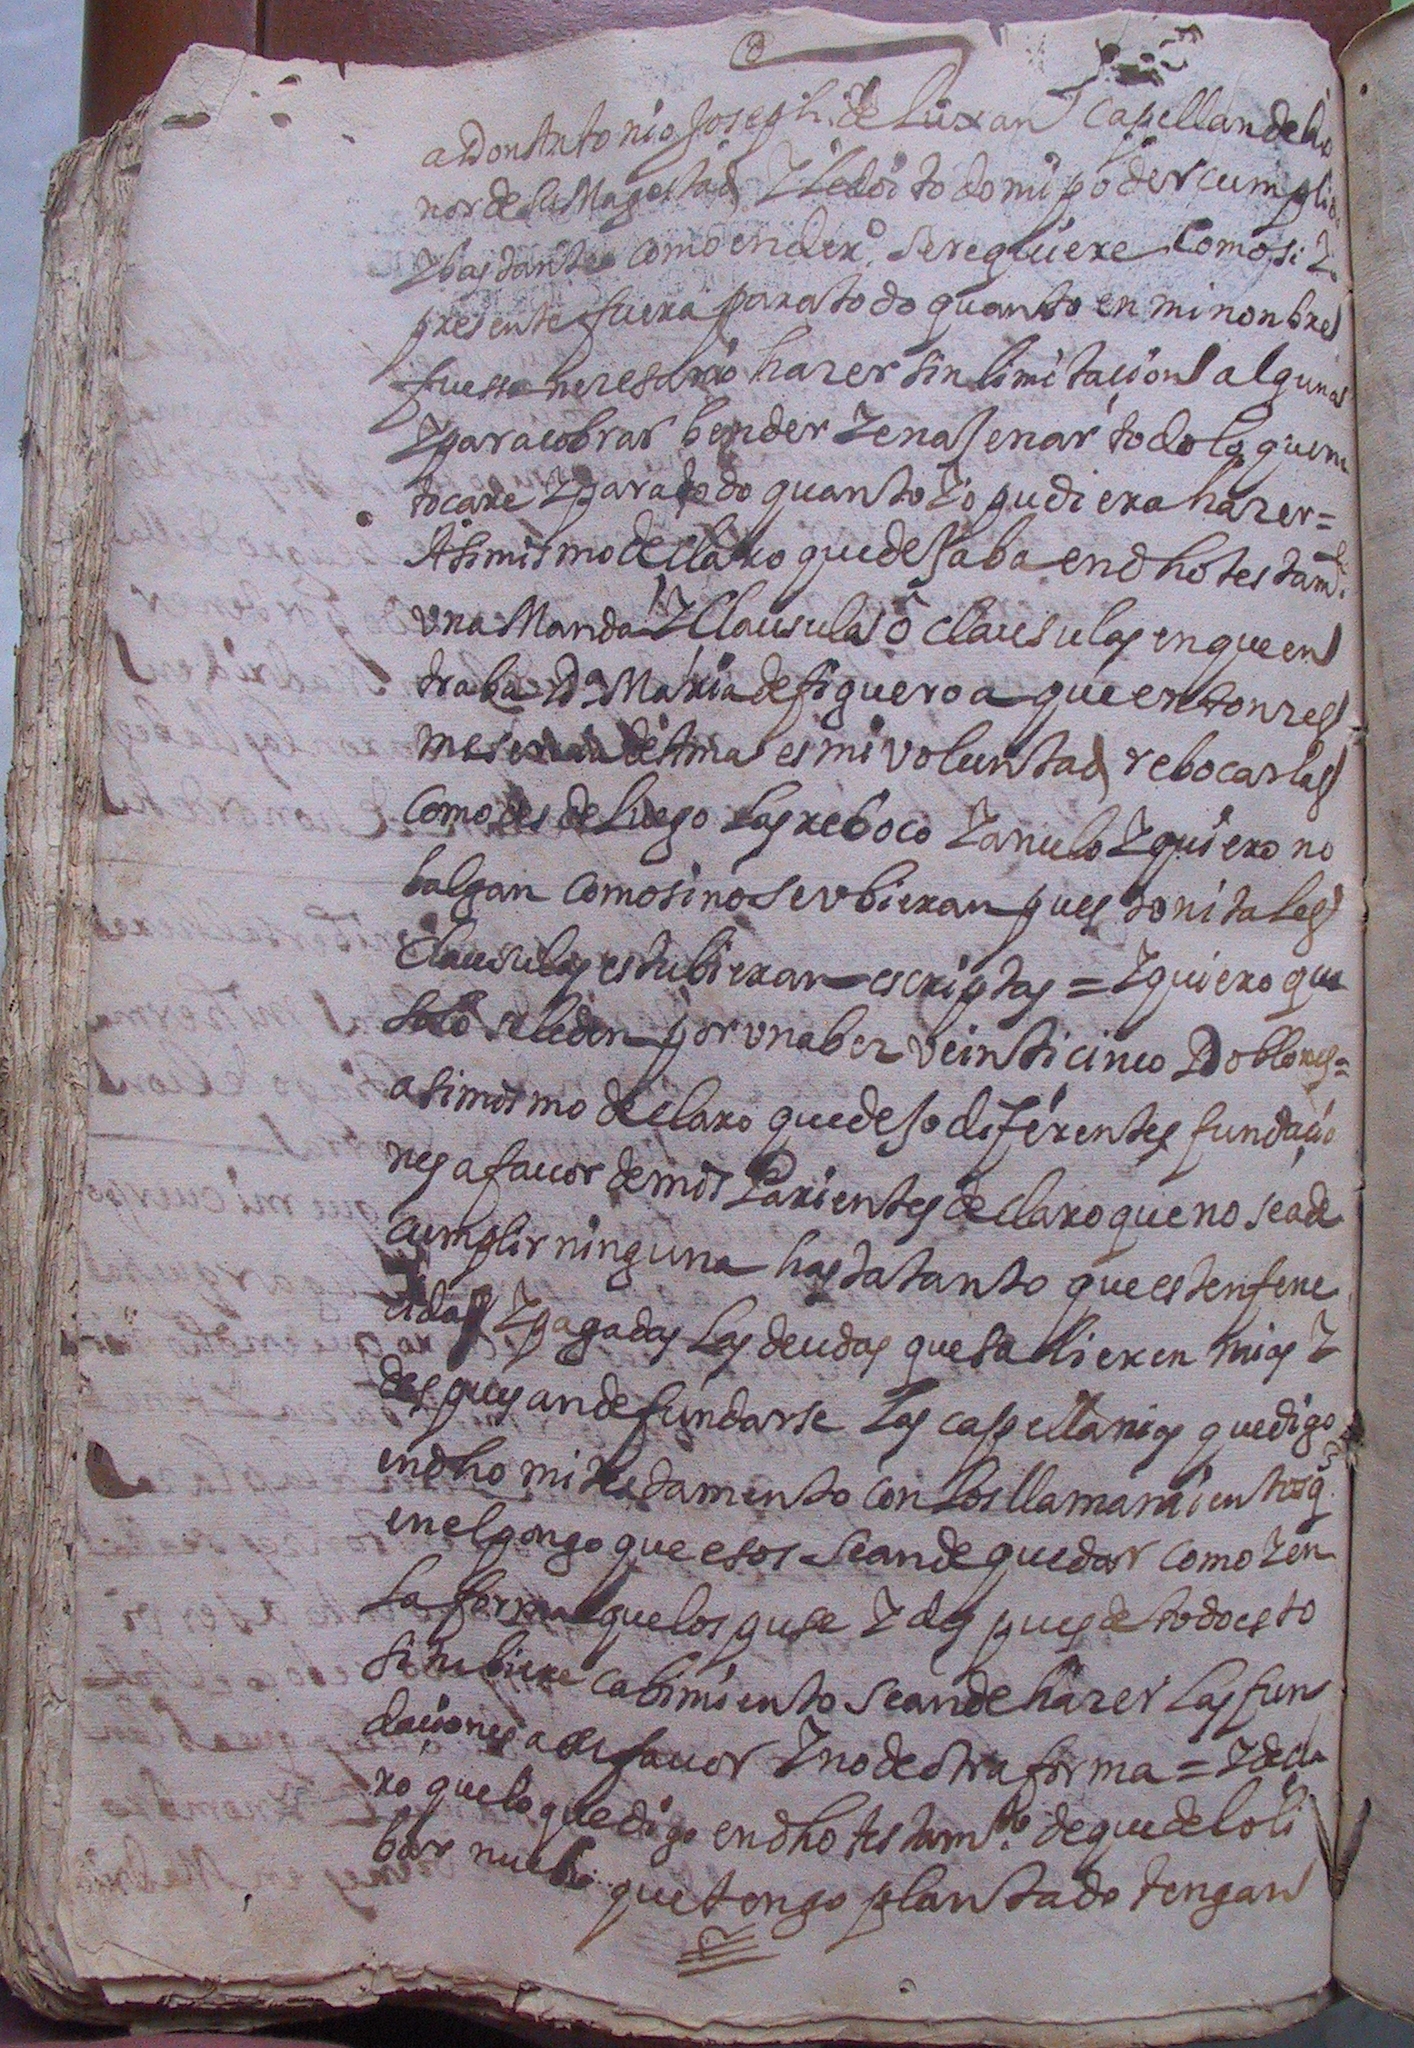 a Don Antonio Joseph de Luxan Capellan de ho
nor de Su Magestad Y le doi todo mi poder cumplido
Y bastante como en derº se requiere como si Yo
presente fuera para todo quanto en mi nonbre
fuesse nezesario hazer sin limitacion alguna
Y para cobrar bender Y enaJenar todo lo que me
tocare Y para todo quanto Yo pudiera hazer =
Asimismo declaro que deJaba en dho testamto
vna Manda Y Clausula o clausulas en que en
traba Da Maria de figueroa que entonzes
me es mi voluntad rebocarlas
como desde luego las reboco Y anulo Y quiero no
balgan como si no se vbieran puesto ni tales
Clausulas estubieran escriptas = Y quiero que
solo se le den por vna bez veinticinco Doblones =
asimismo declaro que deJo diferentes fundacio
nes a fauor de mis Parientes declaro que no se a de
cumplir ninguna hasta tanto que esten fene
cidas Y pagadas las deudas que salieren mias Y
despues an de fundarse las capellanias que digo
en dho mi testamento con los llamamientos q
en el pongo que esos se an de quedar como Y en
la forma que los puse Y des pues de todo esto
si tubiere cabimiento se an de hazer las fun
daciones a su fauor Y no de otra forma = Y decla
ro que lo que digo en dho testamto de que del oli
bar nuebo que tengo plantado tengan